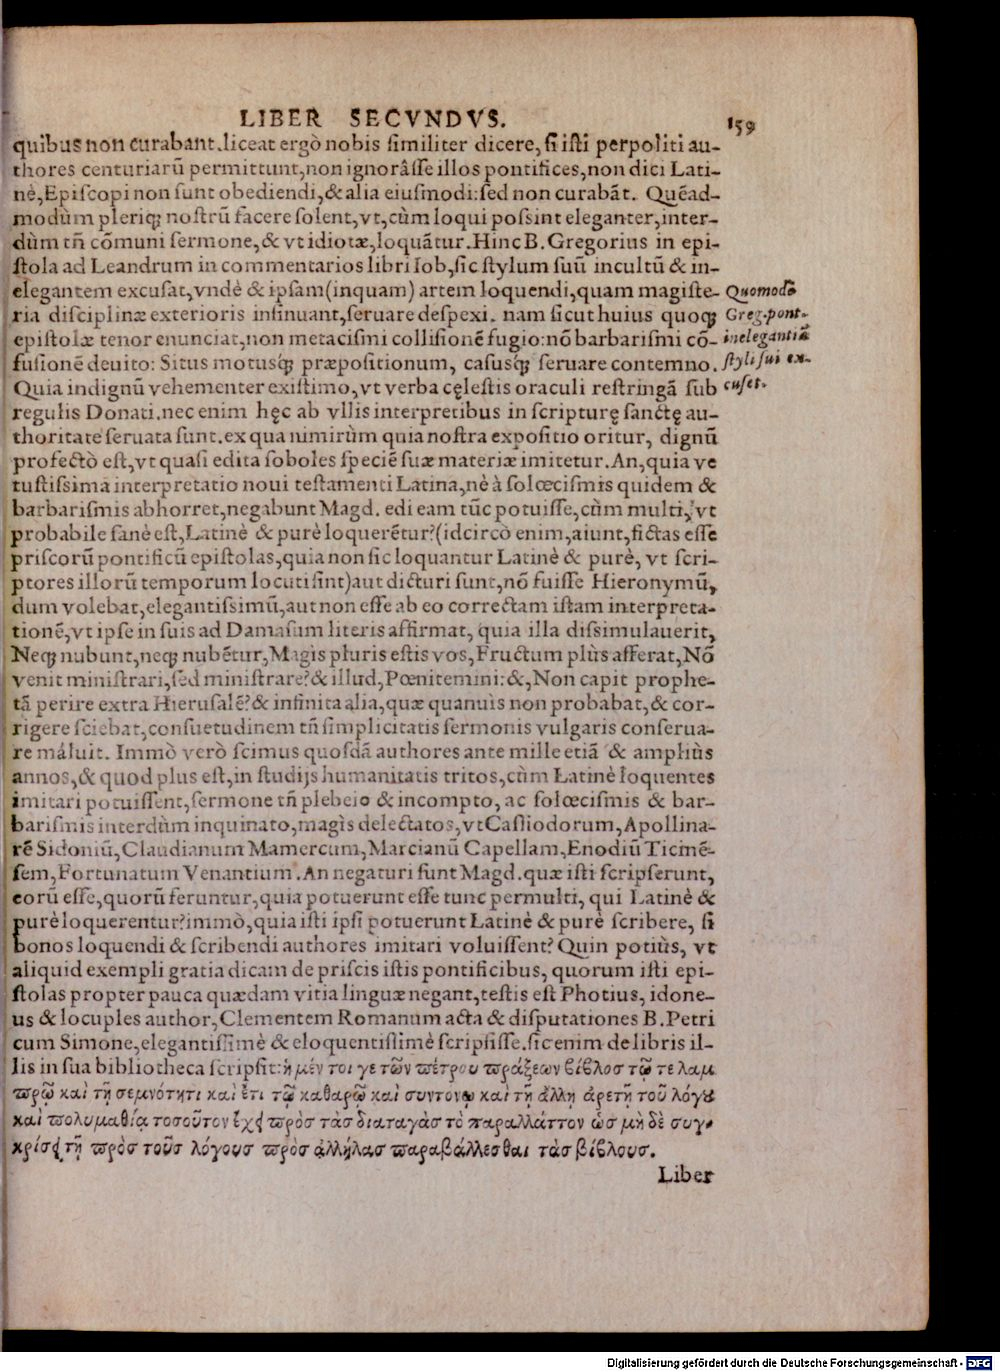 LIBER SECVNDVS. 159
quibus non curabant.liceat ergò nobis ſimiliter dicere, ſi iſti perpoliti au-
thores centuriarũ permittunt,non ignorâſſe illos pontifices,non dici Lati-
nè,Epiſcopi non ſunt obediendi,& alia eiuſmodi:ſed non curabãt. Quẽad-
modùm pleriqꝫ noſtrũ facere ſolent,vt,cùm loqui poſsint eleganter,inter-
dùm tñ cõmuni ſermone,& vt idiotæ,loquãtur.Hinc B. Gregorius in epi-
ſtola ad Leandrum in commentarios libri Iob,ſic ſtylum ſuũ incultũ & in-
elegantem excuſat,vndè & ipſam(inquam) artem loquendi,quam magiſte-
ria diſciplinæ exterioris inſinuant,ſeruare deſpexi. nam ſicut huius quoqꝫ
epiſtolæ tenor enunciat,non metaciſmi colliſionẽ fugio:nõ barbariſmi cõ-
fuſionẽ deuito: Situs motusqꝫ præpoſitionum, caſusqꝫ ſeruare contemno.
Quia indignũ vehementer exiſtimo,vt verba cęleſtis oraculi reſtringã ſub
regulis Donati.nec enim hęc ab vllis interpretibus in ſcripturę ſanctę au-
thoritate ſeruata ſunt.ex qua nimirùm quia noſtra expoſitio oritur, dignũ
profectò eſt,vt quaſi edita ſoboles ſpeciẽ ſuæ materiæ imitetur.An,quia ve
tuſtiſsima interpretatio noui teſtamenti Latina,nè à ſolœciſmis quidem &
barbariſmis abhorret,negabunt Magd. edi eam tũc potuiſſe,cùm multi,vt
probabile ſanè eſt,Latinè & purè loquerẽtur?(idcircò enim,aiunt,fictas eſſe
priſcorũ pontificũ epiſtolas,quia non ſic loquantur Latinè & purè, vt ſcri-
ptores illorũ temporum locuti ſint)aut dicturi ſunt,nõ fuiſſe Hieronymũ,
dum volebat,elegantiſsimũ,aut non eſſe ab eo correctam iſtam interpreta-
tionẽ,vt ipſe in ſuis ad Damaſum literis affirmat, quia illa diſsimulauerit,
Neqꝫ nubunt,neqꝫ nubẽtur,Magis pluris eſtis vos,Fructum plùs afferat,Nõ
venit miniſtrari,ſed miniſtrare?& illud,Pœnitemini:&,Non capit prophe-
tã perire extra Hieruſalẽ?& infinita alia,quæ quanuis non probabat,& cor-
rigere ſciebat,conſuetudinem tñ ſimplicitatis ſermonis vulgaris conſerua-
re máluit. Immò verò ſcimus quoſdã authores ante mille etiã & ampliùs
annos,& quod plus eſt,in ſtudijs humanitatis tritos,cùm Latinè loquentes
imitari potuiſſent,ſermone tñ plebeio & incompto, ac ſolœciſmis & bar-
bariſmis interdùm inquinato,magis delectatos,vt Caſſiodorum,Apollina-
rẽ Sidoniũ,Claudianum Mamercum,Marcianũ Capellam,Enodiũ Ticinẽ-
ſem,Fortunatum Venantium.An negaturi ſunt Magd.quæ iſti ſcripſerunt,
eorũ eſſe,quorũ feruntur,quia potuerunt eſſe tunc permulti, qui Latinè &
purè loquerentur?immò,quia iſti ipſi potuerunt Latinè & purè ſcribere, ſi
bonos loquendi & ſcribendi authores imitari voluiſſent? Quin potiùs, vt
aliquid exempli gratia dicam de priſcis iſtis pontificibus, quorum iſti epi-
ſtolas propter pauca quædam vitia linguæ negant,teſtis eſt Photius, idone-
us & locuples author,Clementem Romanum acta & diſputationes B. Petri
cum Simone,elegantiſſimè & eloquentiſſimè ſcripſiſſe.ſic enim de libris il-
lis in ſua bibliotheca ſcripſit:ἡ μέν τοι γε τῶν πέτρου πράξεων βίβλος τῷ τε λαμ
πρῷ καὶ τῇ σεμνότητι καὶ ἔτι τῷ καθαρῷ καὶ συντονῳ καὶ τῇ ἄλλη ἀρετῇ τοῦ λόγȣ
καὶ πολυμαθίᾳ τοσοῦτον ἔχει πρὸς τὰς διαταγὰς τὸ παραλλάττον ὡς μὴ δὲ συγ-
κρίσει τῇ πρὸς τοῦς λόγους πρὸς ἀλλήλας παραβάλλεσθαι τὰς βίβλους.
Liber
Quomodò
Greg.pont.
inelegantiã
ſtyli ſui ex-
cuſet.
Digitalisierung gefördert durch die Deutsche Forschungsgemeinschaft - DFG